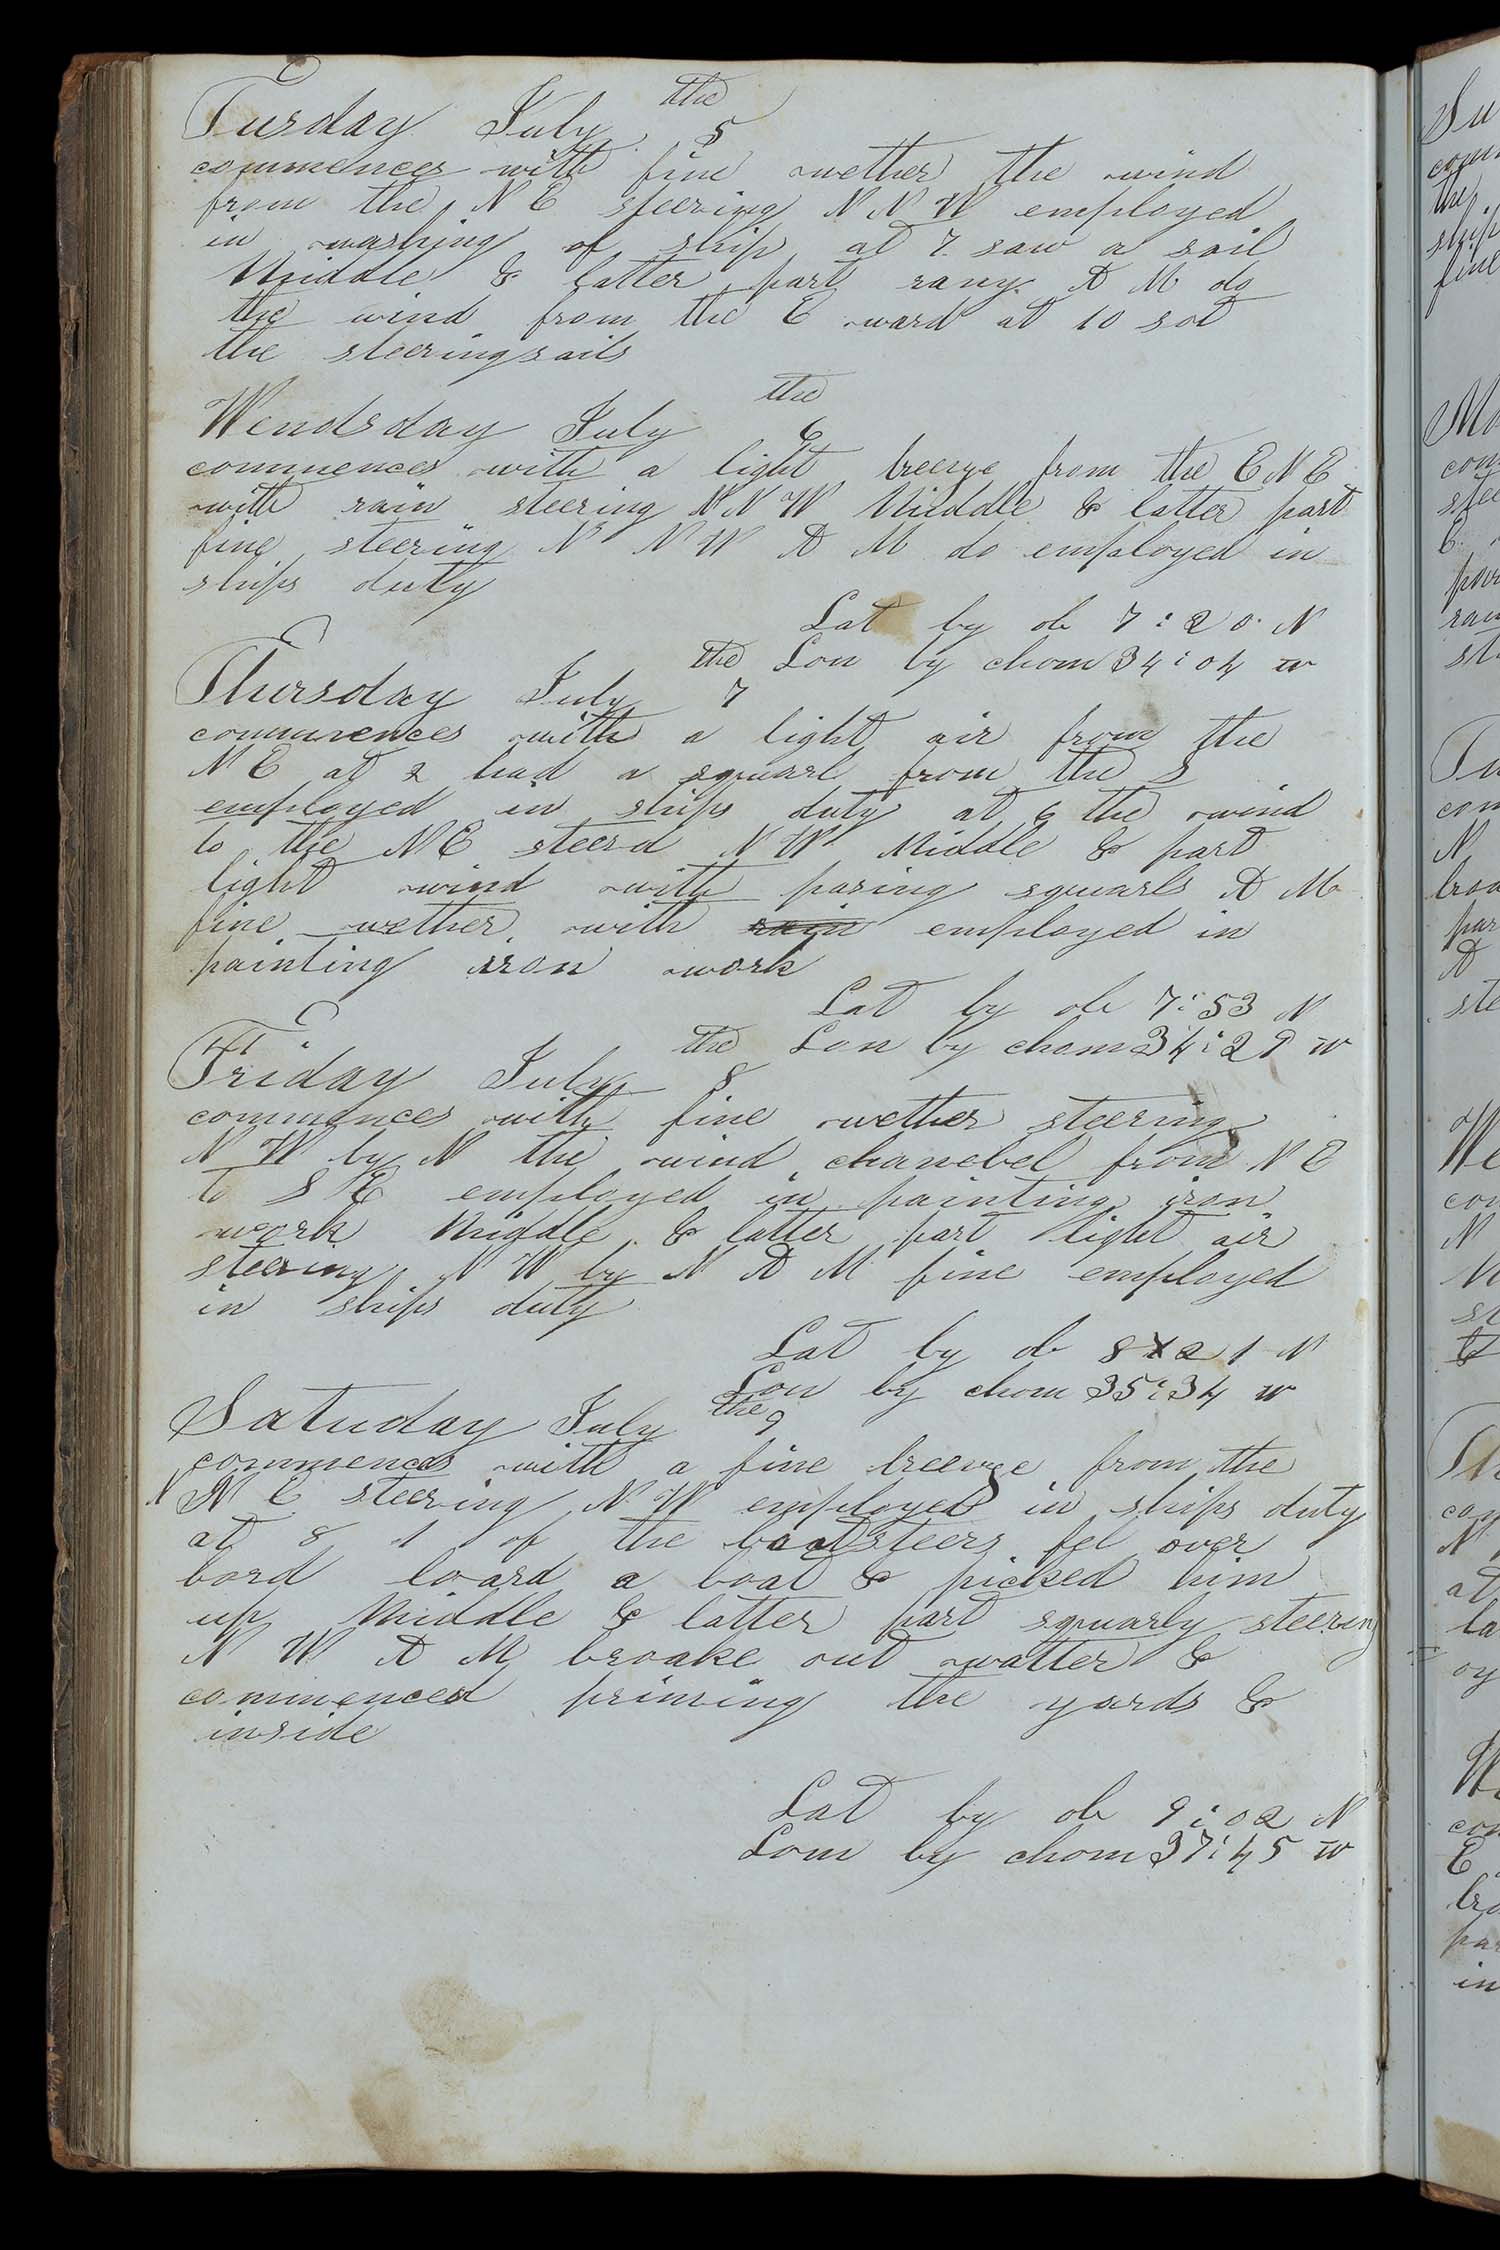 Tusday July the 5
commences with fine wether the wind
from the N E steering N N W employed
in washing of ship at 7 saw a sail
Middle & latter part rany A M do
the wind from the E ward at 10 sot
the steeringsails
Wendsday July the 6
commences with a light breeze from the E N E
with rain steering N N W Middle & latter part
fine steering N N W A M do employed in
ships duty
Lat by ob 7:20 N
Lon by chom 34:04 w
Thursday July the 7
commences with a light air from the
N E at 2 had a squarl from the S
employed in ships duty at 6 the wind
to the N E steerd N W Middle & part
light wind with pasing squarls A M
fine wether with rain employed in
painting iron work
Lat by ob 7:53 N
Lon by chom 34:29 w
Friday July the 8
commences with fine wether steering
N W by N the wind from N E
to S E employed in painting iron
work Middle & latter part light air
steering N W by N A M fine employed
in ships duty
Lat by ob 8:21 N
Lon by chom 35:34 w
Satuday July the 9
commences with a fine breeze from the
N N E steering N W employed in ships duty
at 8 1 of the boatsteers fel over
bord loard a boat & picked him
up Middle & latter part squarly steering
N W A M broake out watter &
commenced priming the yards &
inside
Lat by ob 9:02 N
Lom by chom 37:45 w